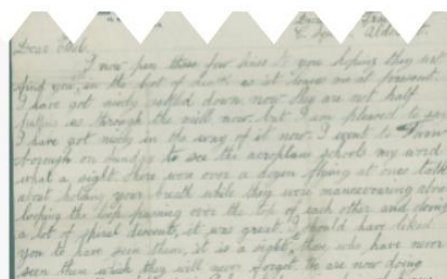 Dear
C. Aldershot.
Dear Earl.
I now pen these few lines to you hoping they will
find you, in the best of health as it leaves me at present.
I have got nicely settled down now they are not half
putting us through the mill now, but I am pleased to say
I have got nicely in the way of it now. I went to Farn
borough on Sunday to see the aeroplane schools my word
what a sight there was over a dozen flying at once talk
about holding your breath while they were manoeuvering about
looping the loop passing over the top of each other and doing
a lot of spiral descents, it was great. I should have liked
you to have seen them, it is a sight those who have never
seen them wish they will never forget. We are now doing